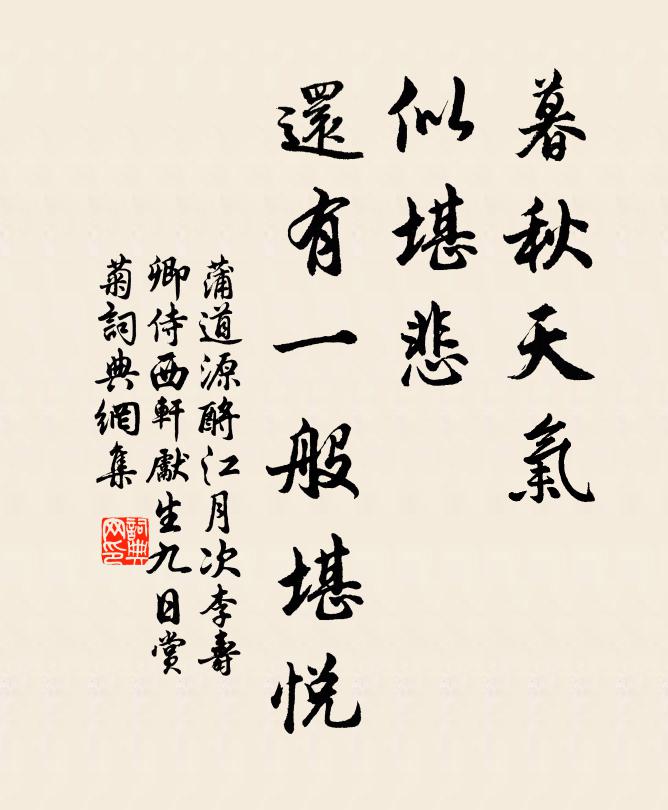 暮秋天氣
似堪悲
還有一般堪悅
蒲道源酹江月次李壽
卿侍西軒獻生九日賞
菊詞典網集
詞典
网印